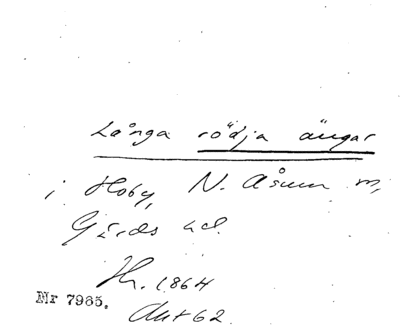 Långa rödja ängar
i Hoby, N. Åsum sn,
Gärds hd.
Hr. 1864
Nr 7985. Akt 62